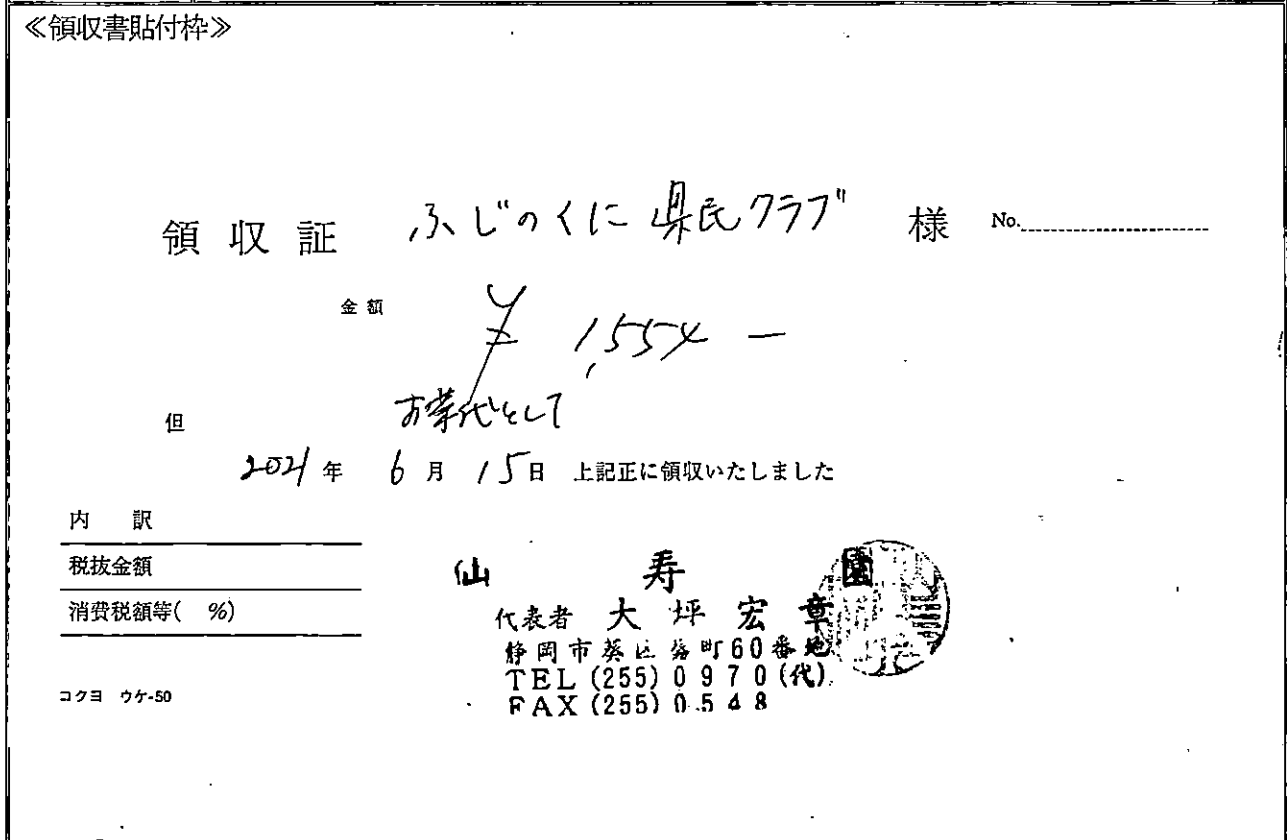 ≪領収書貼付枠≫
領収証 ふじのくに県民クラブ 様 No.
金額 ¥ 1,554 —
但 お茶代として
2021年 6月 15日 上記正に領収いたしました
内 訳
税抜金額
消費税額等( %)
仙 寿 園
代表者 大坪宏章
静岡市葵区 町60番地
TEL (255) 0970 (代)
FAX (255) 0548
コクヨ ウケ-50